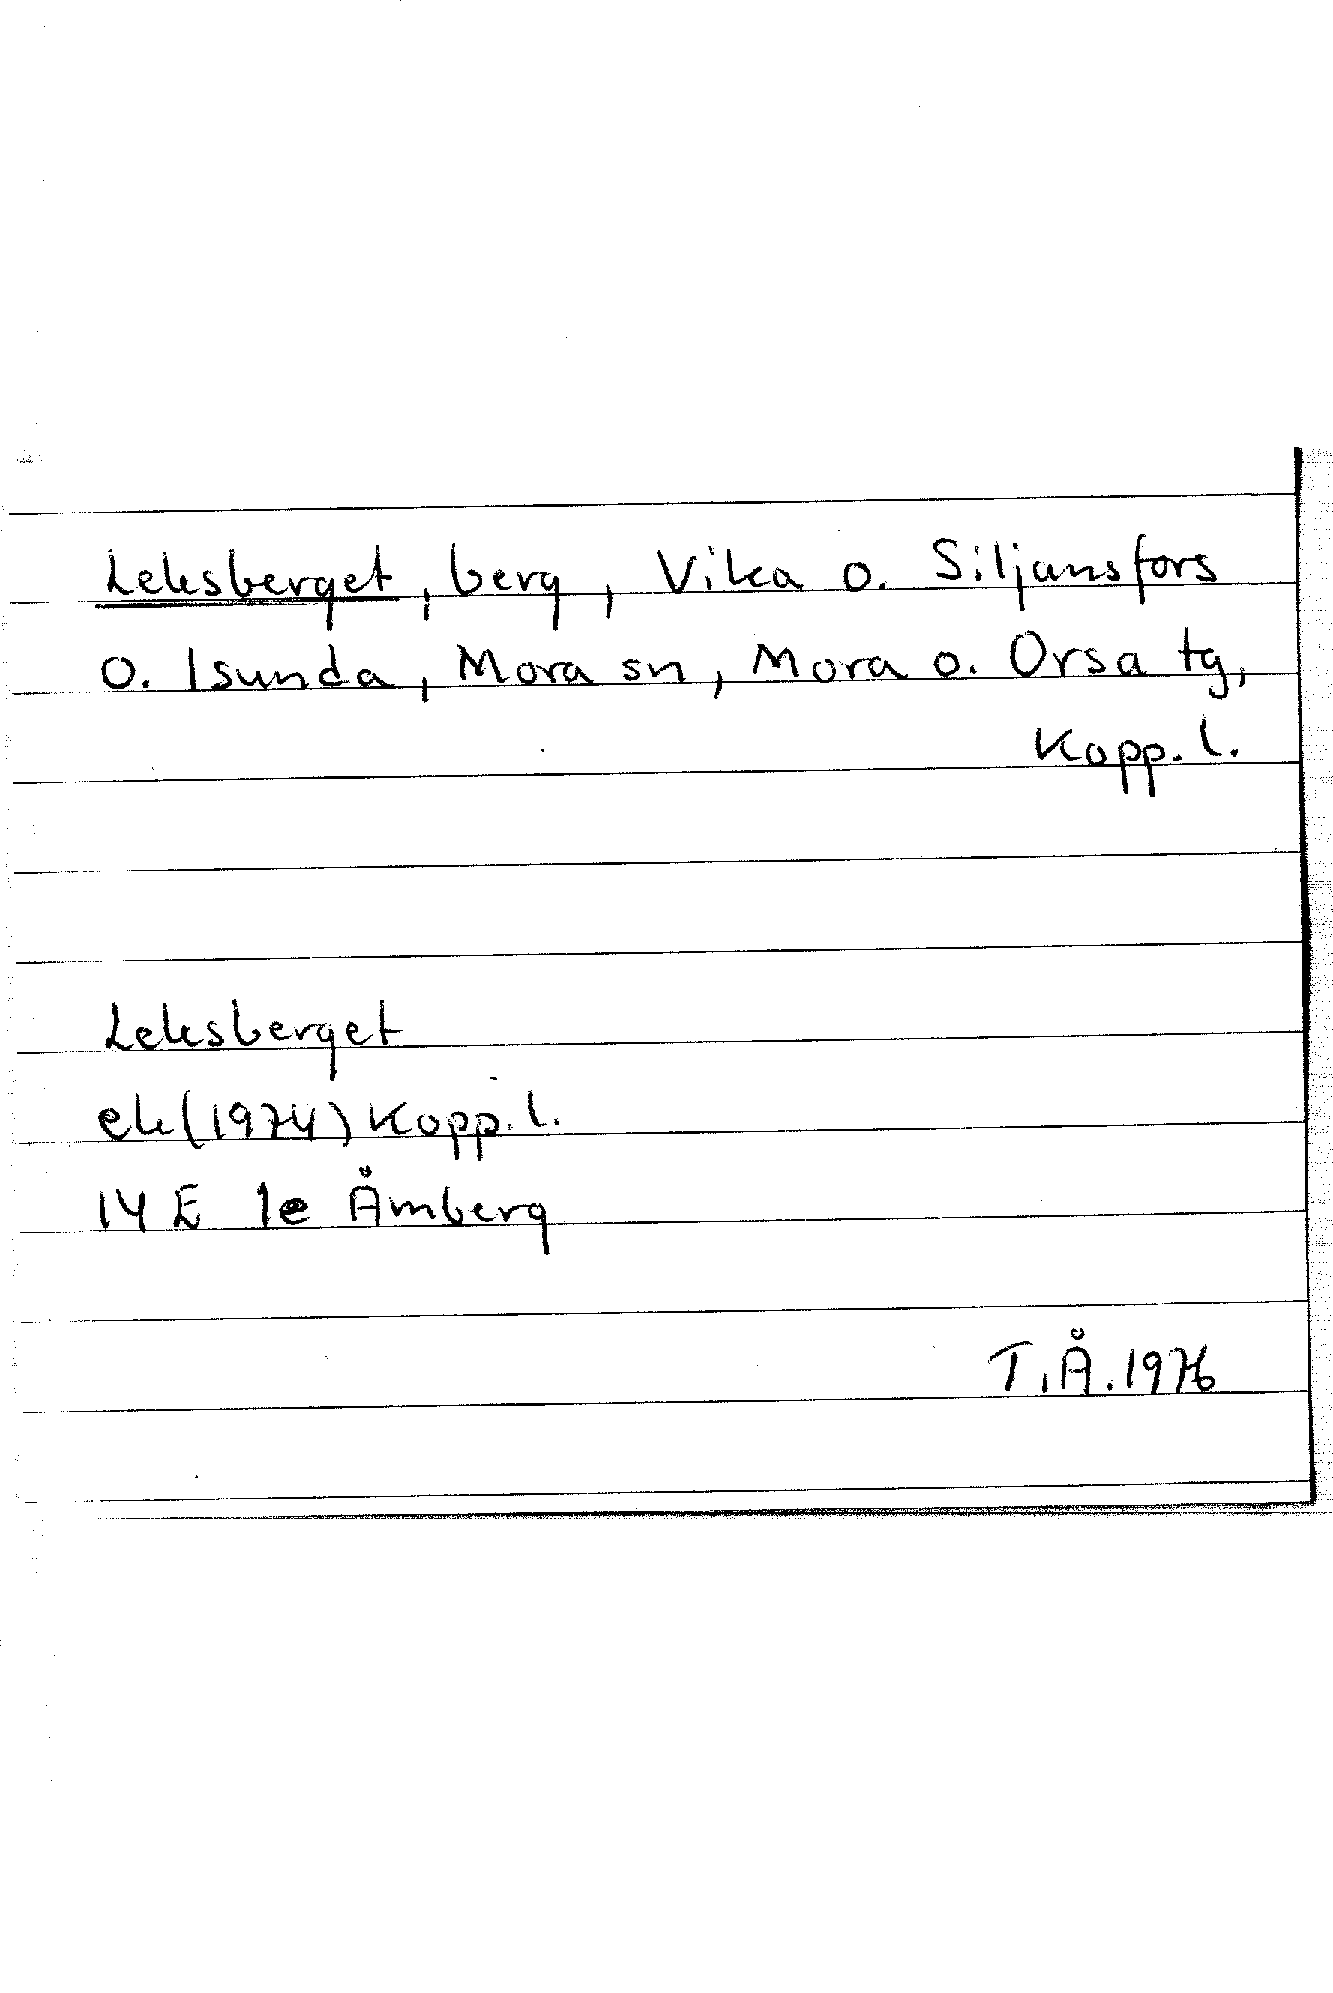 Leksberget, berg, Vika o. Siljansfors
o. Isunda, Mora sn, Mora o. Orsa tg,
Kopp. l.
Leksberget
ek (1974) Kopp. l.
14 E 1e Åmberg
T.Å. 1976